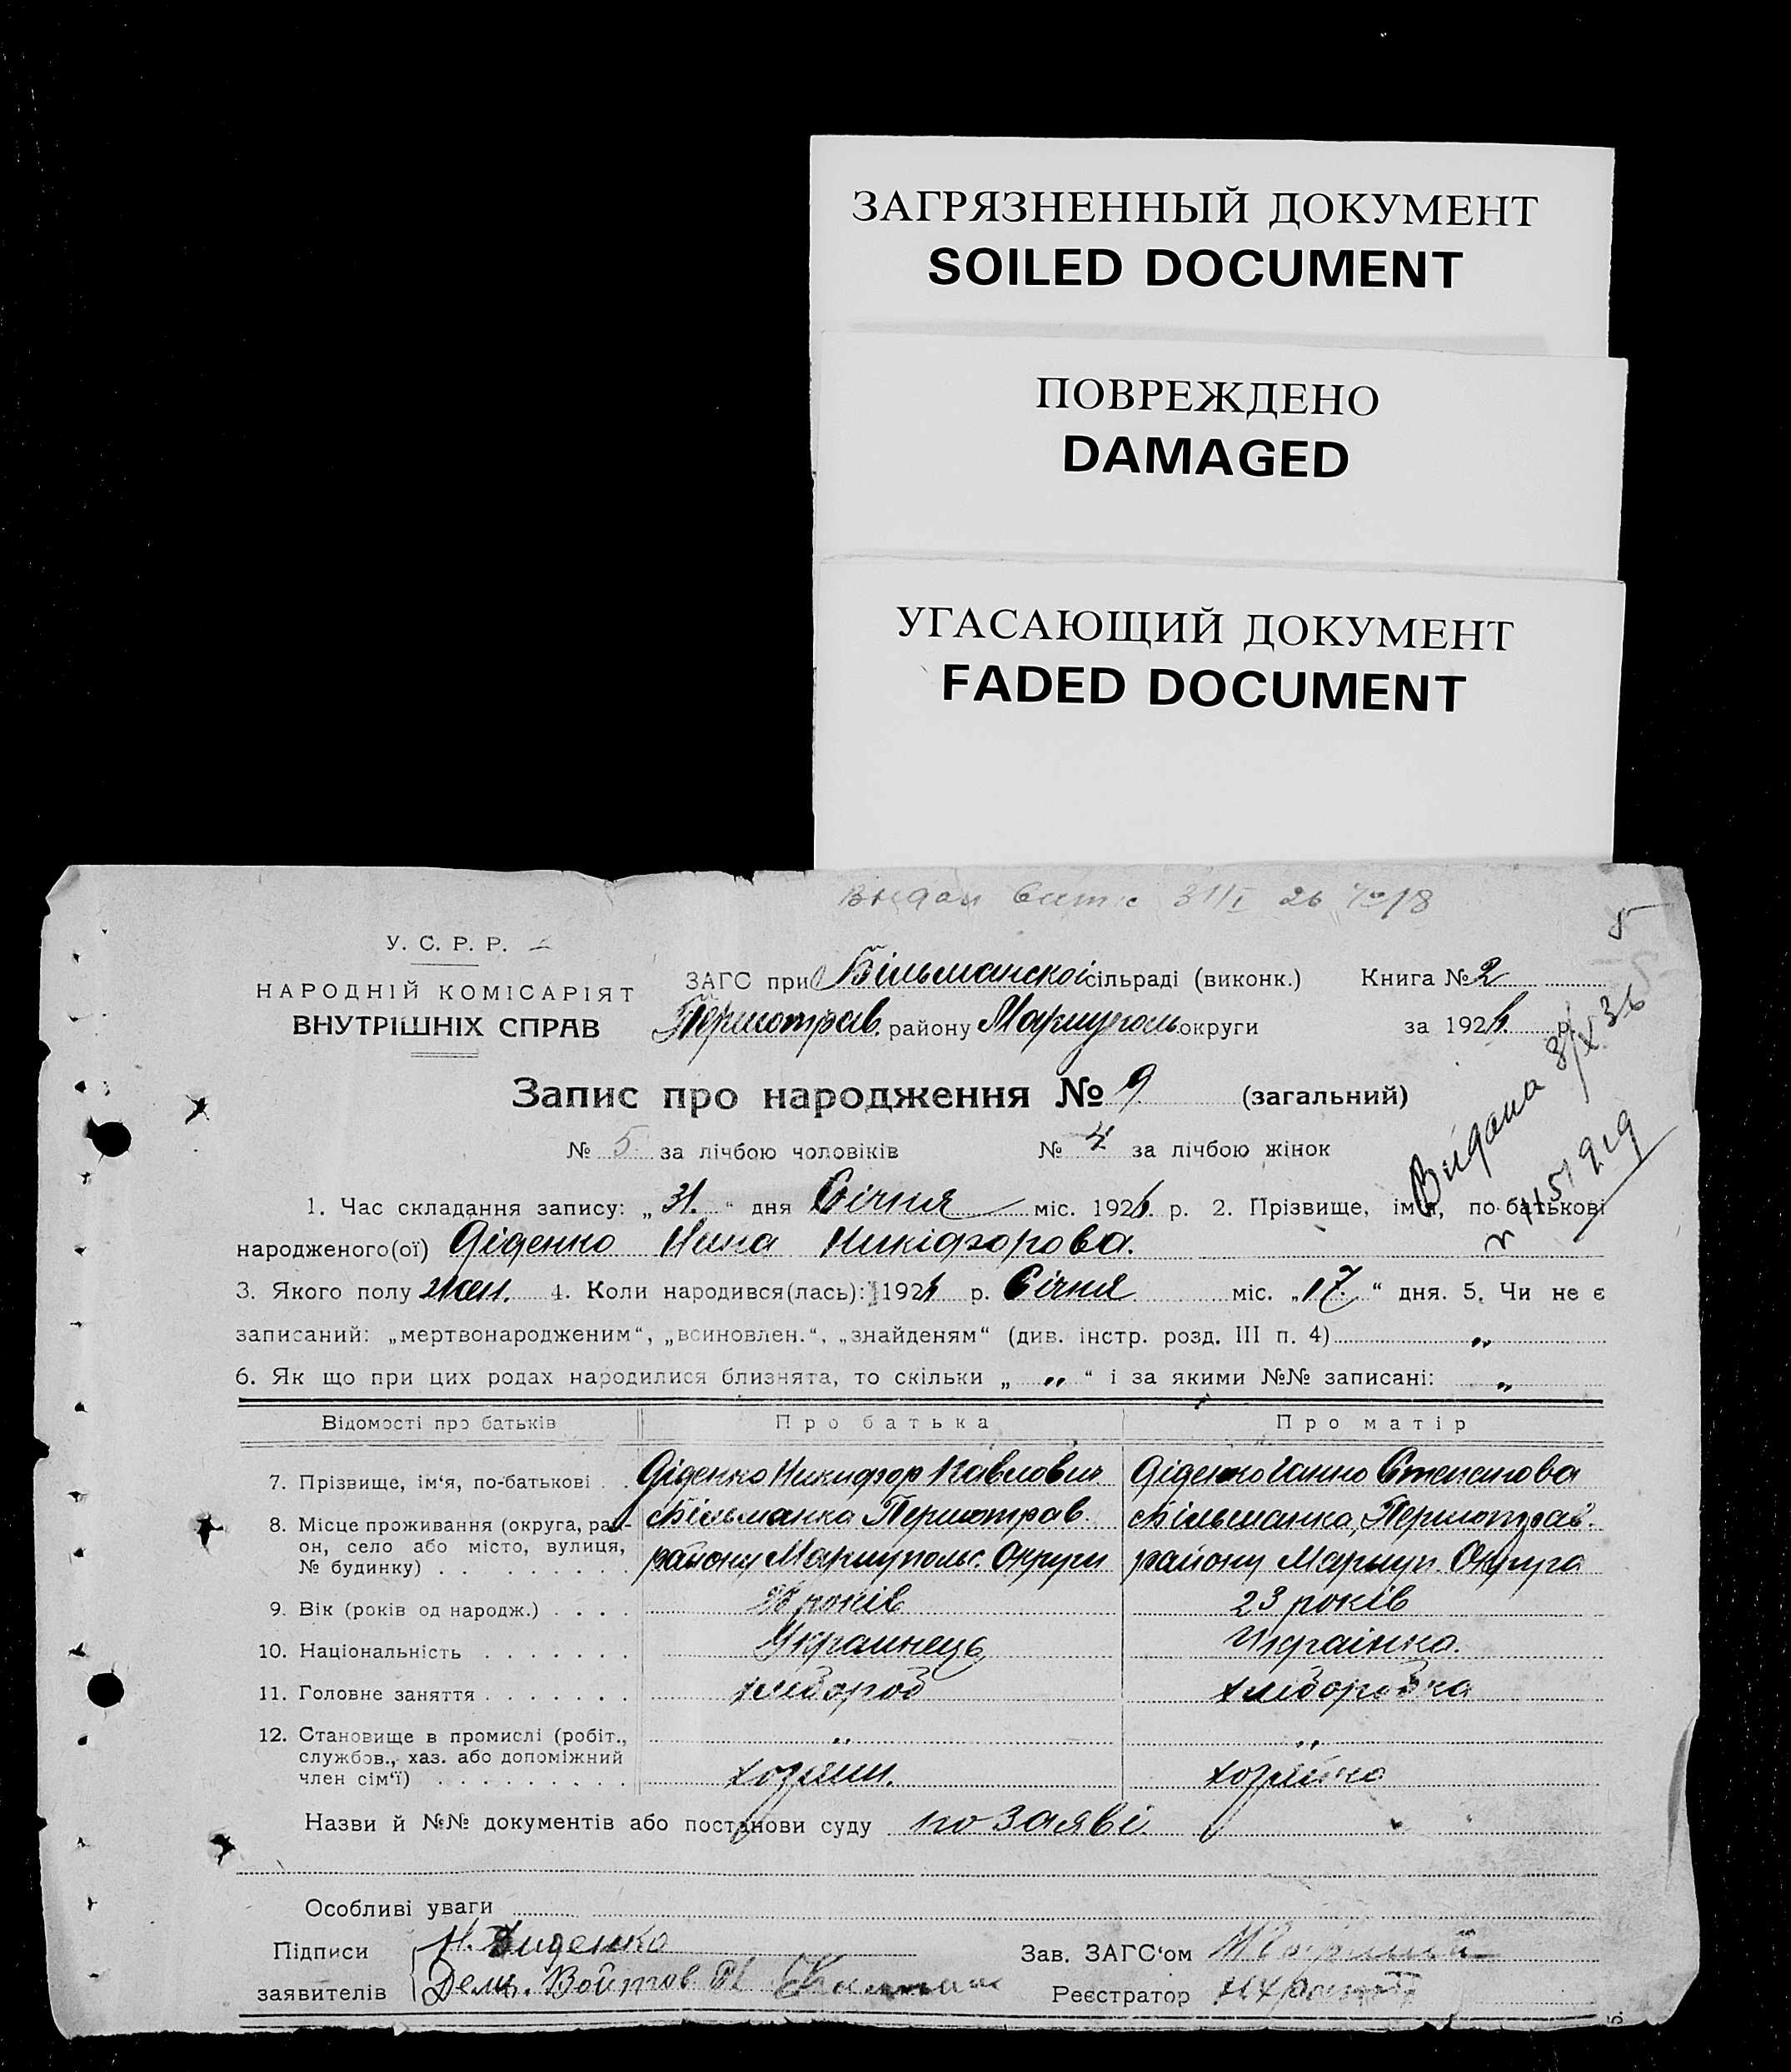 ЗАГРЯЗНЕННЫЙ ДОКУМЕНТ
SOILED DOCUMENT
ПОВРЕЖДЕНО
DAMAGED
УГАСАЮЩИЙ ДОКУМЕНТ
FADED DOCUMENT
31/I 26
У. С. Р. Р.
НАРОДНІЙ КОМІСАРІЯТ
ВНУТРІШНІХ СПРАВ
ЗАГС при Більманскої сільраді (виконк.) Книга № 2
Першотрав. району Мариуполь округи за 1926 р.
Видана 8/X 36
Запис про народження № 9 (загальний)
№ 5 за лічбою чоловіків № 4 за лічбою жінок
1. Час складання запису: „31.“ дня Січня міс. 1926 р. 2. Прізвище, ім'я, по-батькові
народженого(ої) Діденко Нина Никіфорова.
3. Якого полу жен. 4. Коли народився(лась): 1926 р. Січня міс. „17.“ дня. 5. Чи не є
записаний: „мертвонародженим“, „всиновлен.“, „знайденям“ (див. інстр. розд. III п. 4) „
6. Як що при цих родах народилися близнята, то скільки „ „ “ і за якими №№ записані: „
Відомості про батьків Про батька Про матір
7. Прізвище, ім'я, по-батькові . . Діденко Никифор Павлович Діденко Ганна Степанова
8. Місце проживання (округа, рай- Більманка Першотрав. Більманка, Першотрав.
он, село або місто, вулиця, району Мариупольс. Округи району Мариуп. Округа
№ будинку) . . . . . . . . .
9. Вік (років од народж.) . . . . 26 років 23 років
10. Національність . . . . . . . Украинець Украінка.
11. Головне заняття . . . . . . . хлібороб хліборобка
12. Становище в промислі (робіт., „ „
службов., хаз. або допоміжний
член сім'ї) . . . . . . . . . хозяин. хозяйка
Назви й №№ документів або постанови суду по заяві
Особливі уваги
Підписи Н. Диденко Зав. ЗАГС'ом
заявителів Войтов Реєстратор